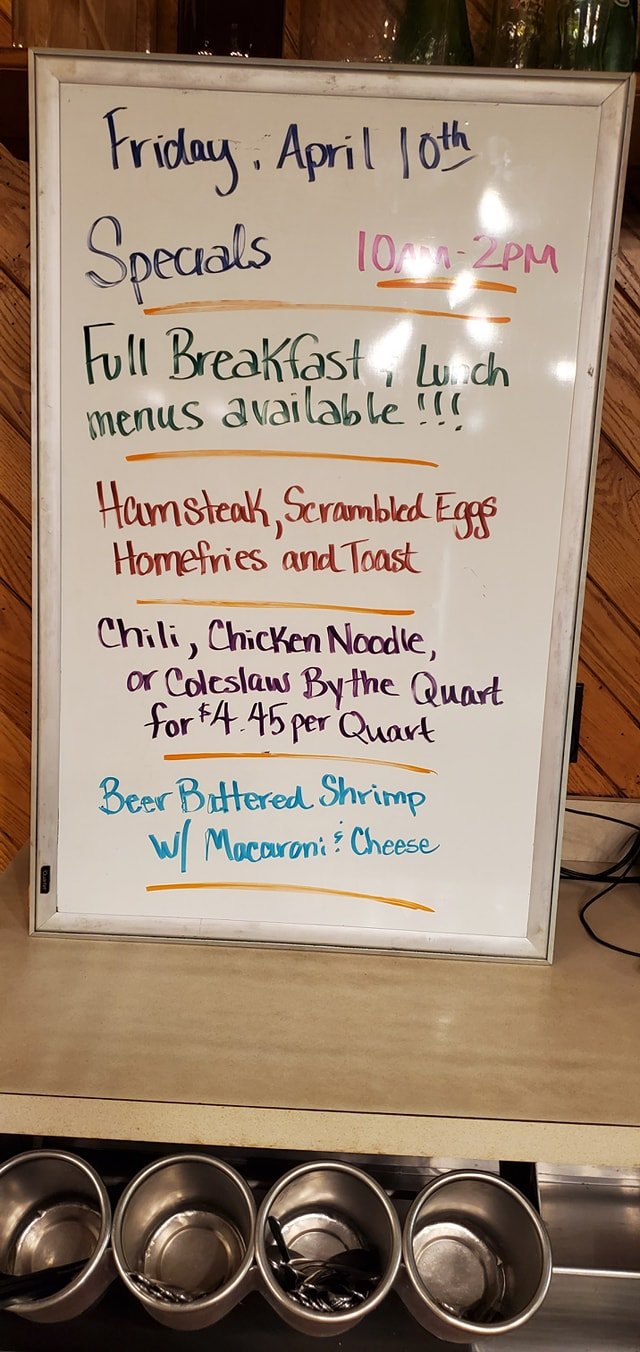 Friday, April 10th
Specials 10AM-2PM
Full Breakfast, Lunch
menus available!!!
Hamsteak, Scrambled Eggs
Homefries and Toast
Chili, Chicken Noodle,
or Coleslaw By the Quart
for $4.45 per Quart
Beer Battered Shrimp
W/ Macaroni & Cheese